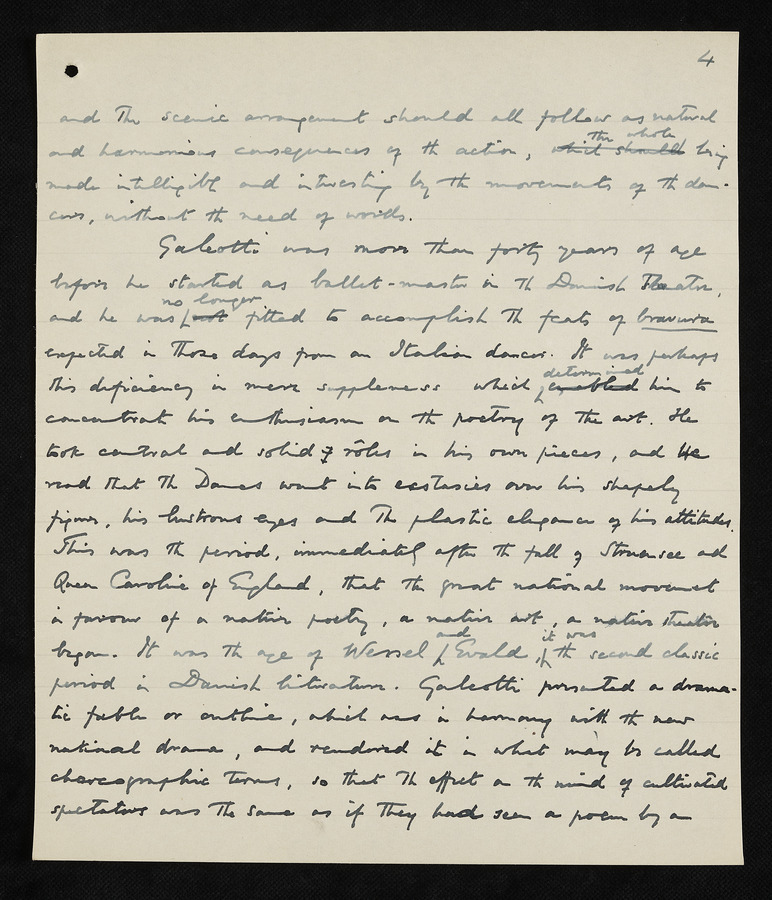 4
and the scenic arrangement should all follow as natural
the whole
and harmonious consequences of the action, which should being
made intelligible and interesting by the movements of the dan-
cers, without the need of words.
Galeotti was more than forty years of age
before he started as ballet-master in the Danish Theatre,
no longer
and he was not fitted to accomplish the feats of bravura
expected in those days from an Italian dancer. It was perhaps
determined
this deficiency in mere suppleness which enabled him to
concentrate his enthusiasm on the poetry of the art. He
took central and solid rôles in his own pieces, and we
read that the Danes went into ecstasies over his shapely
figure, his lustrous eyes and the plastic elegance of his attitudes.
This was the period, immediately after the fall of Struensee and
Queen Caroline of England, that the great national movement
in favour of a native poetry, a native art, a native theatre
began. It was the age of Wessel and Ewald, it was the second classic
period in Danish literature. Galeotti presented a drama-
tic fable or outline, which was in harmony with the new
national drama, and rendered it in what may be called
choreographic terms, so that the effect on the mind of cultivated
spectators was the same as if they had seen a poem by an